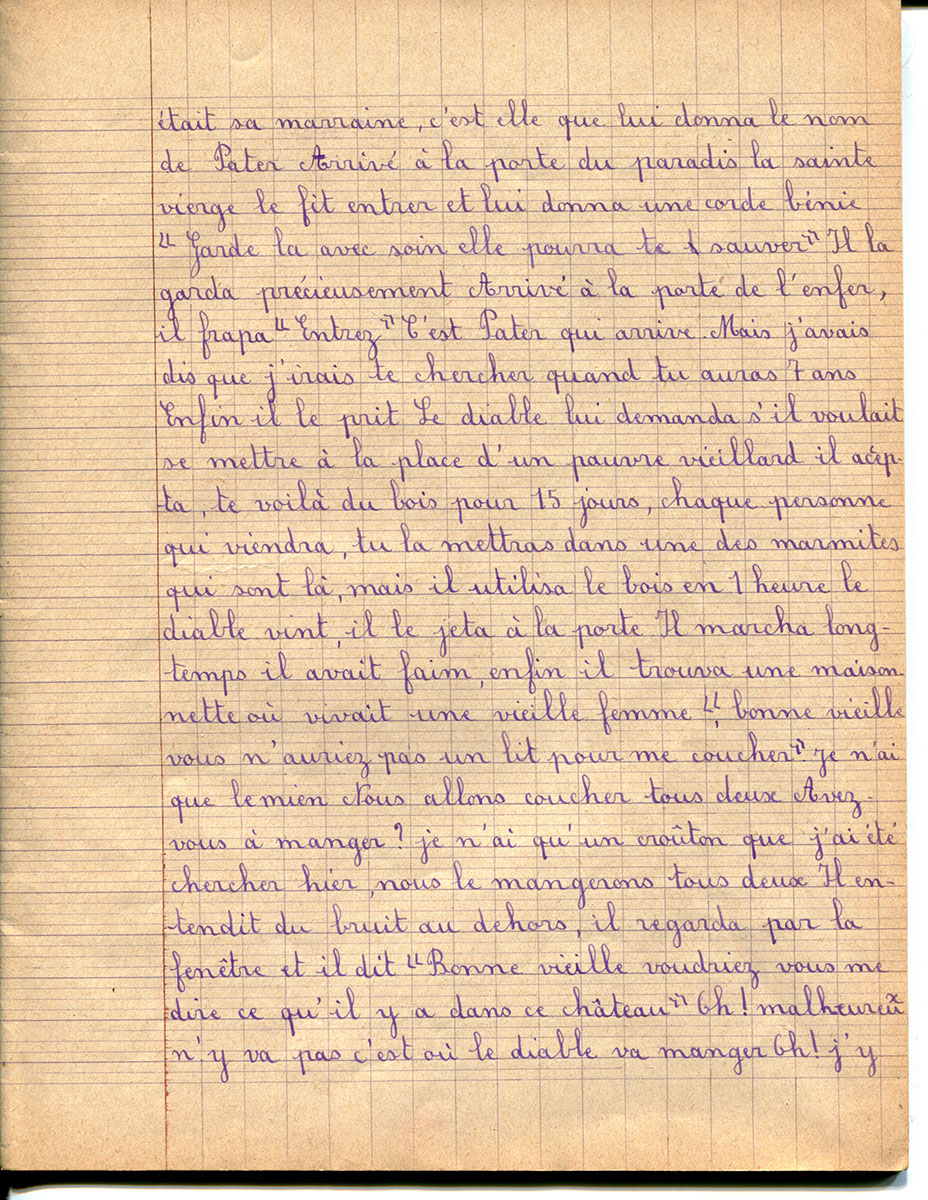 était sa marraine, c'est elle que lui donna le nom
de Pater Arrivé à la porte du paradis la sainte
vierge le fit entrer et lui donna une corde bénie
"Garde la avec soin elle pourra te sauver" Il la
garda précieusement Arrivé à la porte de l'enfer,
il frapa "Entrez" C'est Pater qui arrive. Mais j'avais
dis que j'irais te chercher quand tu auras 7 ans
Enfin il le prit Le diable lui demanda s'il voulait
se mettre à la place d'un pauvre vieillard il acép-
ta, te voilà du bois pour 15 jours, chaque personne
qui viendra, tu la mettras dans une des marmites
qui sont là, mais il utilisa le bois en 1 heure le
diable vint, il le jeta à la porte Il marcha long-
temps il avait faim, enfin il trouva une maison-
nette où vivait une vieille femme ", bonne vieille
vous n'auriez pas un lit pour me coucher". Je n'ai
que le mien Nous allons coucher tous deux Avez-
vous à manger? je n'ai qu'un croûton que j'ai été
chercher hier, nous le mangerons tous deux Il en-
tendit du bruit au dehors, il regarda par la
fenêtre et il dit "Bonne vieille voudriez vous me
dire ce qu'il y a dans ce château" Oh! malheureux
n'y va pas c'est où le diable va manger Oh! j'y